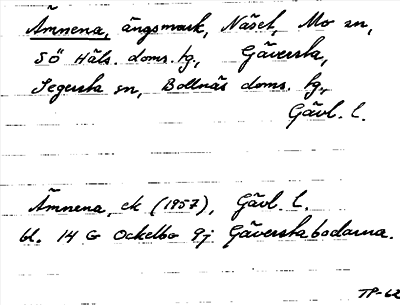 Ämnena, ängsmark, Näset, Mo sn,
Sö Häls. doms. tg., Gäversta,
Segersta sn, Bollnäs doms. tg.,
Gävl. l.
Ämnena, ek (1957), Gävl. l.
bl. 14 G Ockelbo 9j Gäverstabodarna.
TP-62